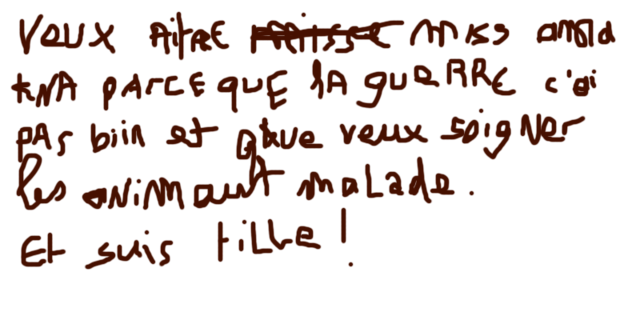 veux AitRE miss amia
kNA PArCE QUE lA guERRE c'ai
PAs biin et Que veux soigNer
les aNimaut maLade.
Et suis tiLLe !